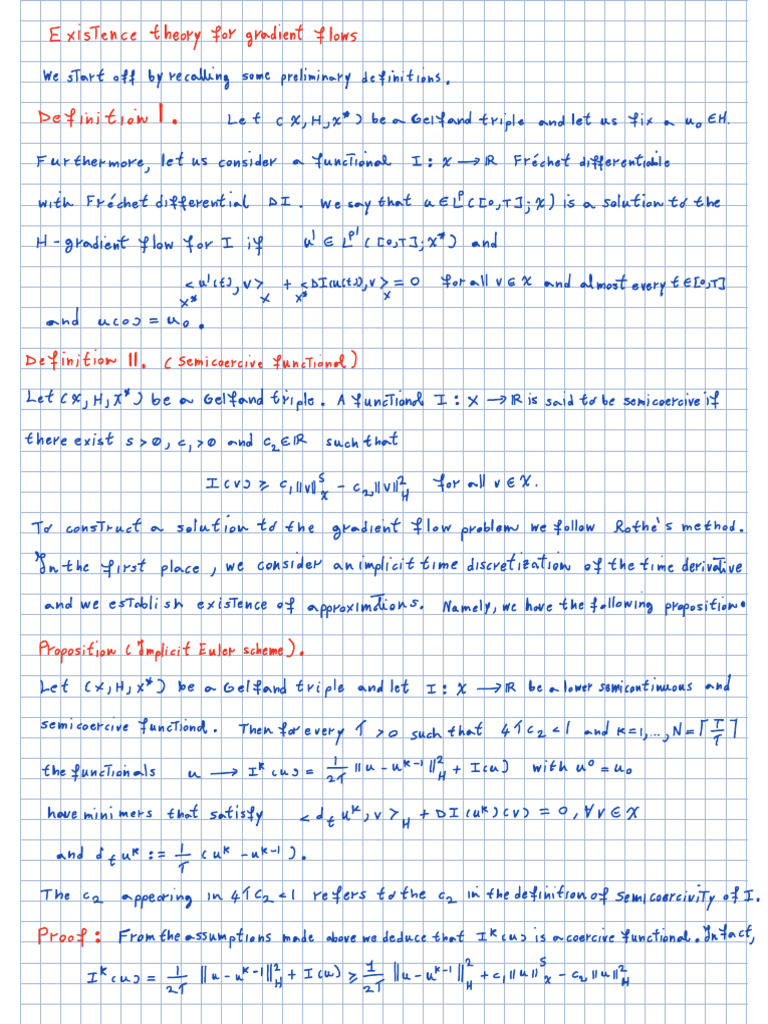 Existence theory for gradient flows
We start off by recalling some preliminary definitions.
Definition I. Let (X, H, X*) be a Gelfand triple and let us fix a u₀ ∈ H.
Furthermore, let us consider a functional I : X → ℝ Fréchet differentiable
with Fréchet differential DI. We say that u ∈ L^p([0,T]; X) is a solution to the
H-gradient flow for I if u' ∈ L^{p'}([0,T]; X*) and
_{X*}<u'(t), v>_X + _{X*}<DI(u(t)), v>_X = 0 for all v ∈ X and almost every t ∈ [0,T]
and u(0) = u₀.
Definition II. (Semicoercive functional)
Let (X, H, X*) be a Gelfand triple. A functional I : X → ℝ is said to be semicoercive if
there exist s > 0, c₁ > 0 and c₂ ∈ ℝ such that
I(v) ≥ c₁ ||v||_X^s - c₂ ||v||_H^2 for all v ∈ X.
To construct a solution to the gradient flow problem we follow Rothe's method.
In the first place, we consider an implicit time discretization of the time derivative
and we establish existence of approximations. Namely, we have the following proposition.
Proposition (Implicit Euler scheme).
Let (X, H, X*) be a Gelfand triple and let I : X → ℝ be a lower semicontinuous and
semicoercive functional. Then for every τ > 0 such that 4τc₂ < 1 and k = 1, ..., N = ⌈T/τ⌉
the functionals u → I^k(u) = 1/2τ ||u - u^{k-1}||_H^2 + I(u) with u⁰ = u₀
have minimers that satisfy <d_t u^k, v>_H + DI(u^k)(v) = 0, ∀v ∈ X
and d_t u^k := 1/τ (u^k - u^{k-1}).
The c₂ appearing in 4τc₂ < 1 refers to the c₂ in the definition of semicoercivity of I.
Proof: From the assumptions made above we deduce that I^k(u) is a coercive functional. In fact,
I^k(u) = 1/2τ ||u - u^{k-1}||_H^2 + I(u) ≥ 1/2τ ||u - u^{k-1}||_H^2 + c₁ ||u||_X^s - c₂ ||u||_H^2